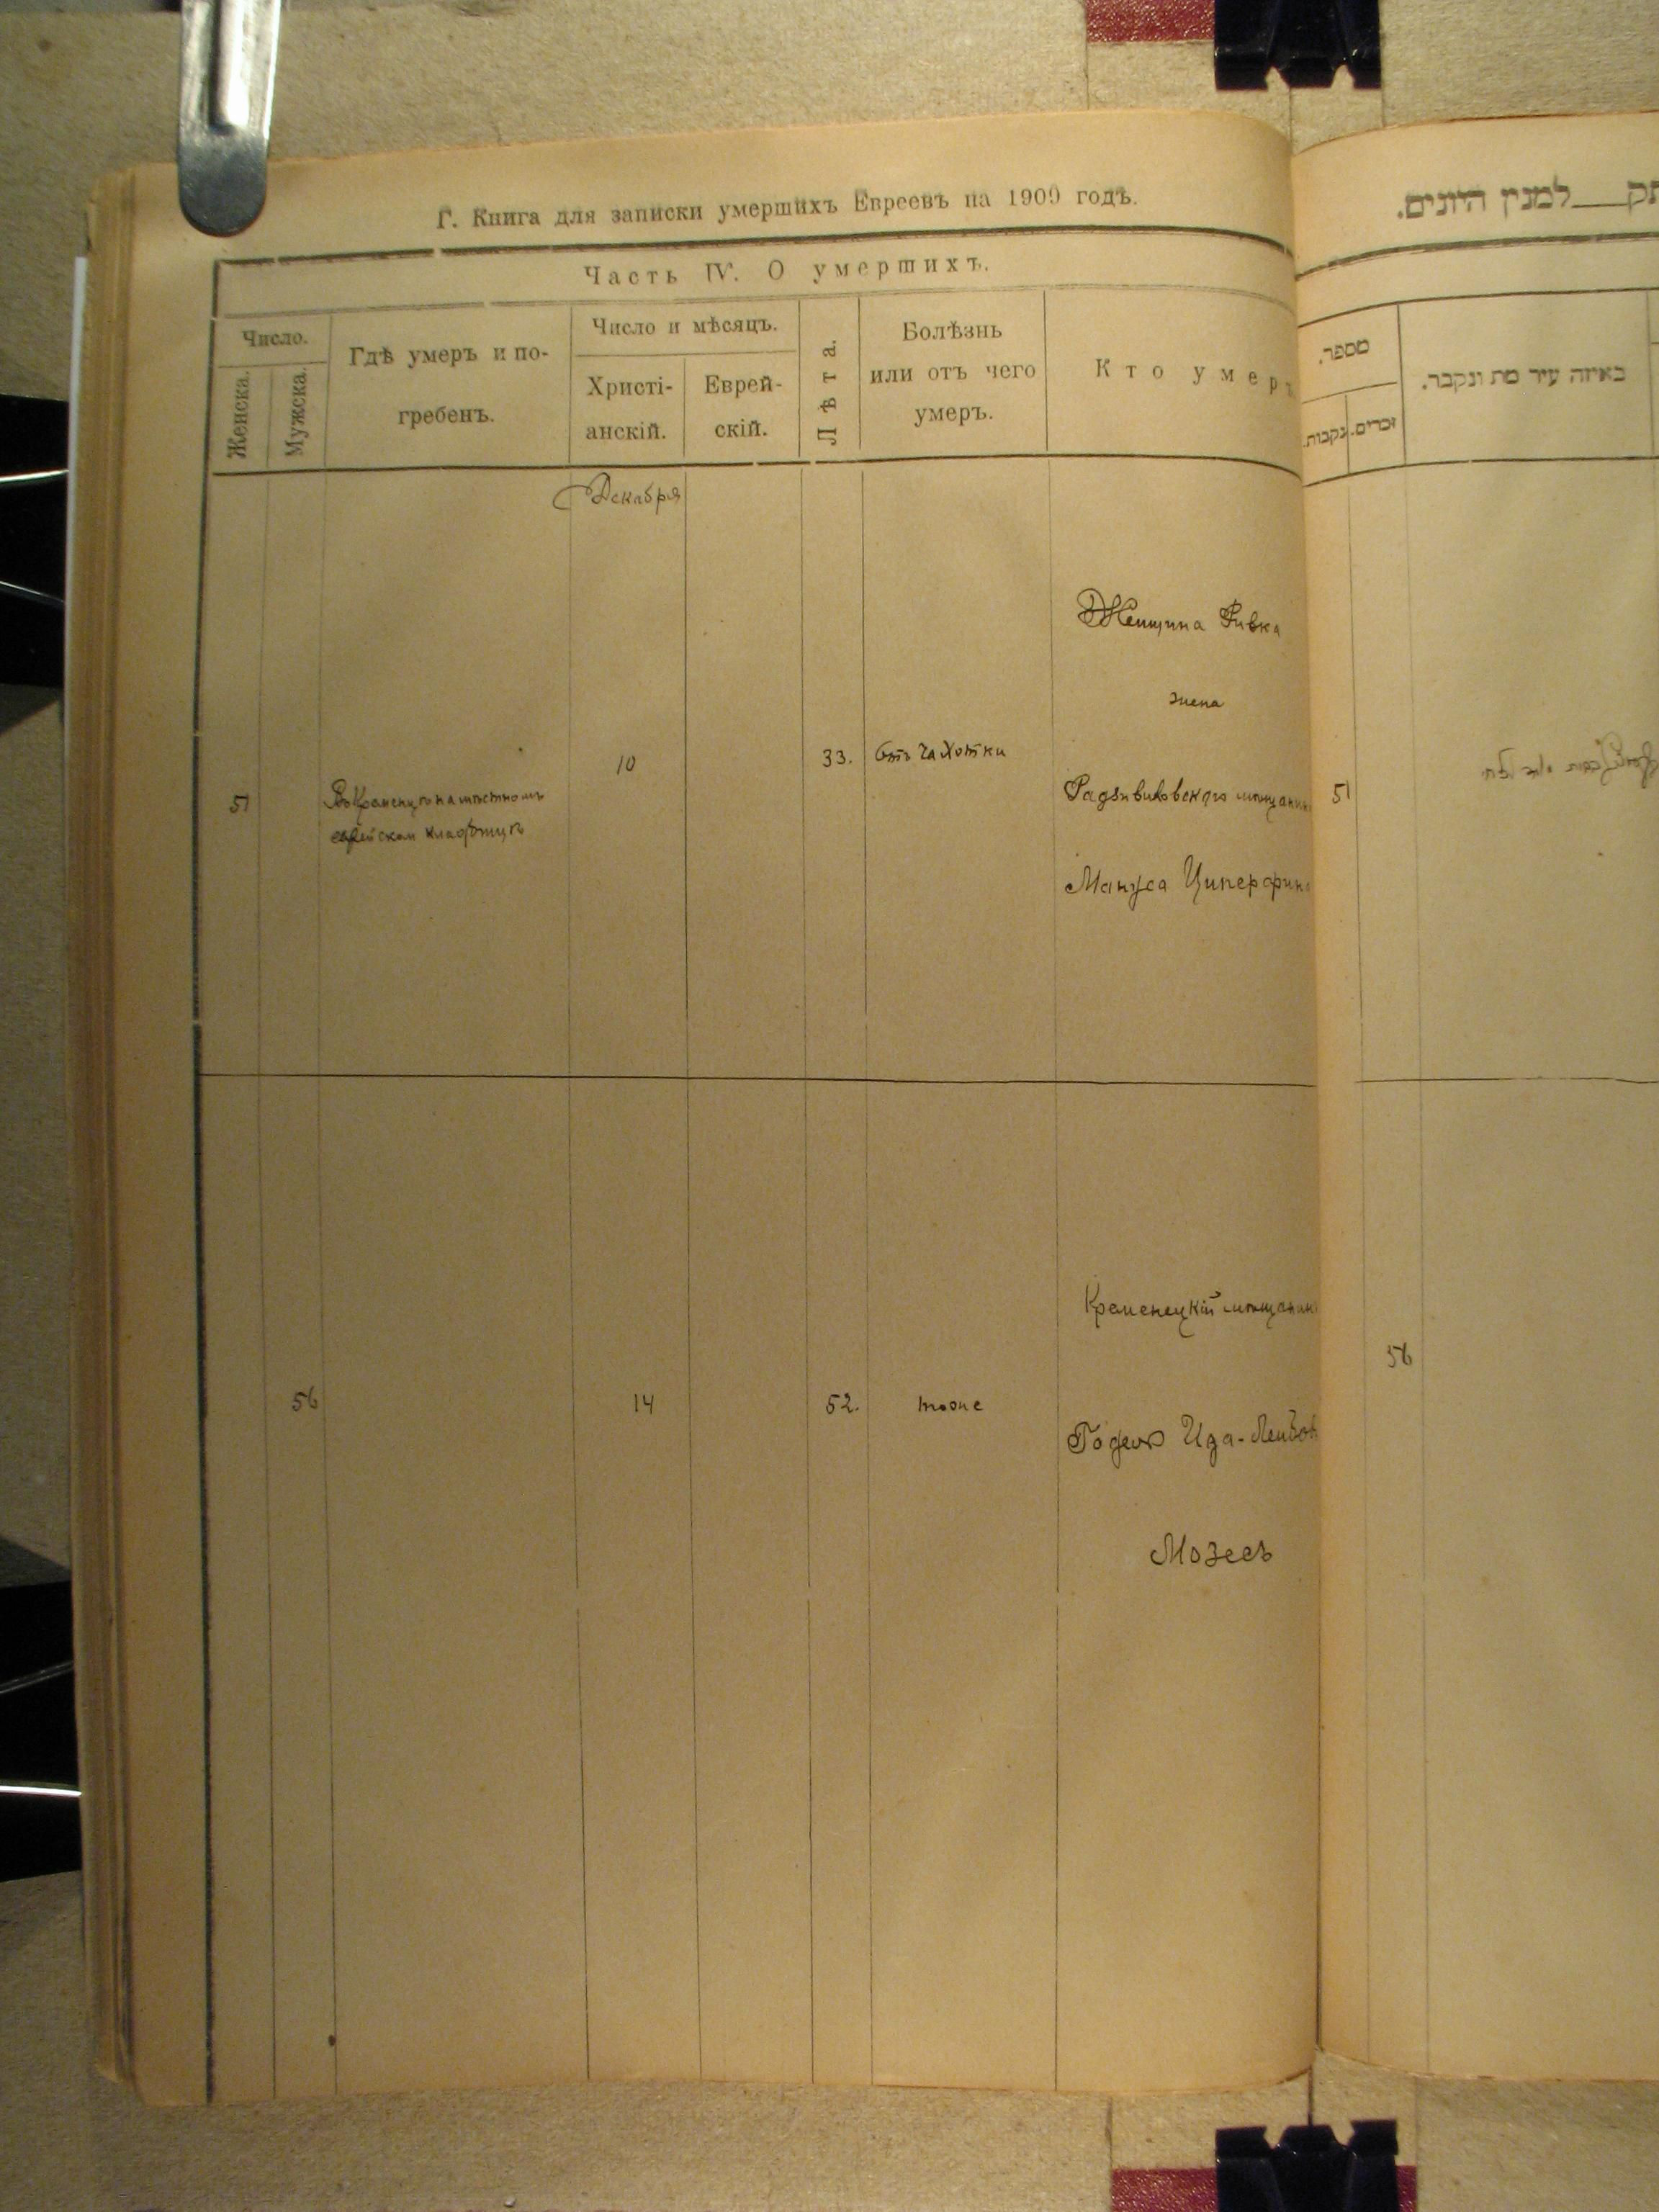 Г. Книга для записки умершихъ Евреевъ на 1909 годъ.
Часть IV. О умершихъ.
Число.
Женска.
Мужска.
Гдѣ умеръ и по-
гребенъ.
Число и мѣсяцъ.
Христі-
анскій.
Еврей-
скій.
Лѣта.
Болѣзнь
или отъ чего
умеръ.
Кто умеръ
Декабря
51
Въ Кременцѣ на мѣстномъ
еврейском кладбищѣ
10
33.
Отъ чахотки
Женщина Ривка
жена
Радзивиловского мѣщанина
Мануса Циперфин
56
14
52.
тоже
Кременецкій мѣщанинъ
Годель Ида-Лейбов
Мозесъ
למנין היונים.
מספר.
נקבות.
זכרים.
באיזה עיר מת ונקבר.
51
56